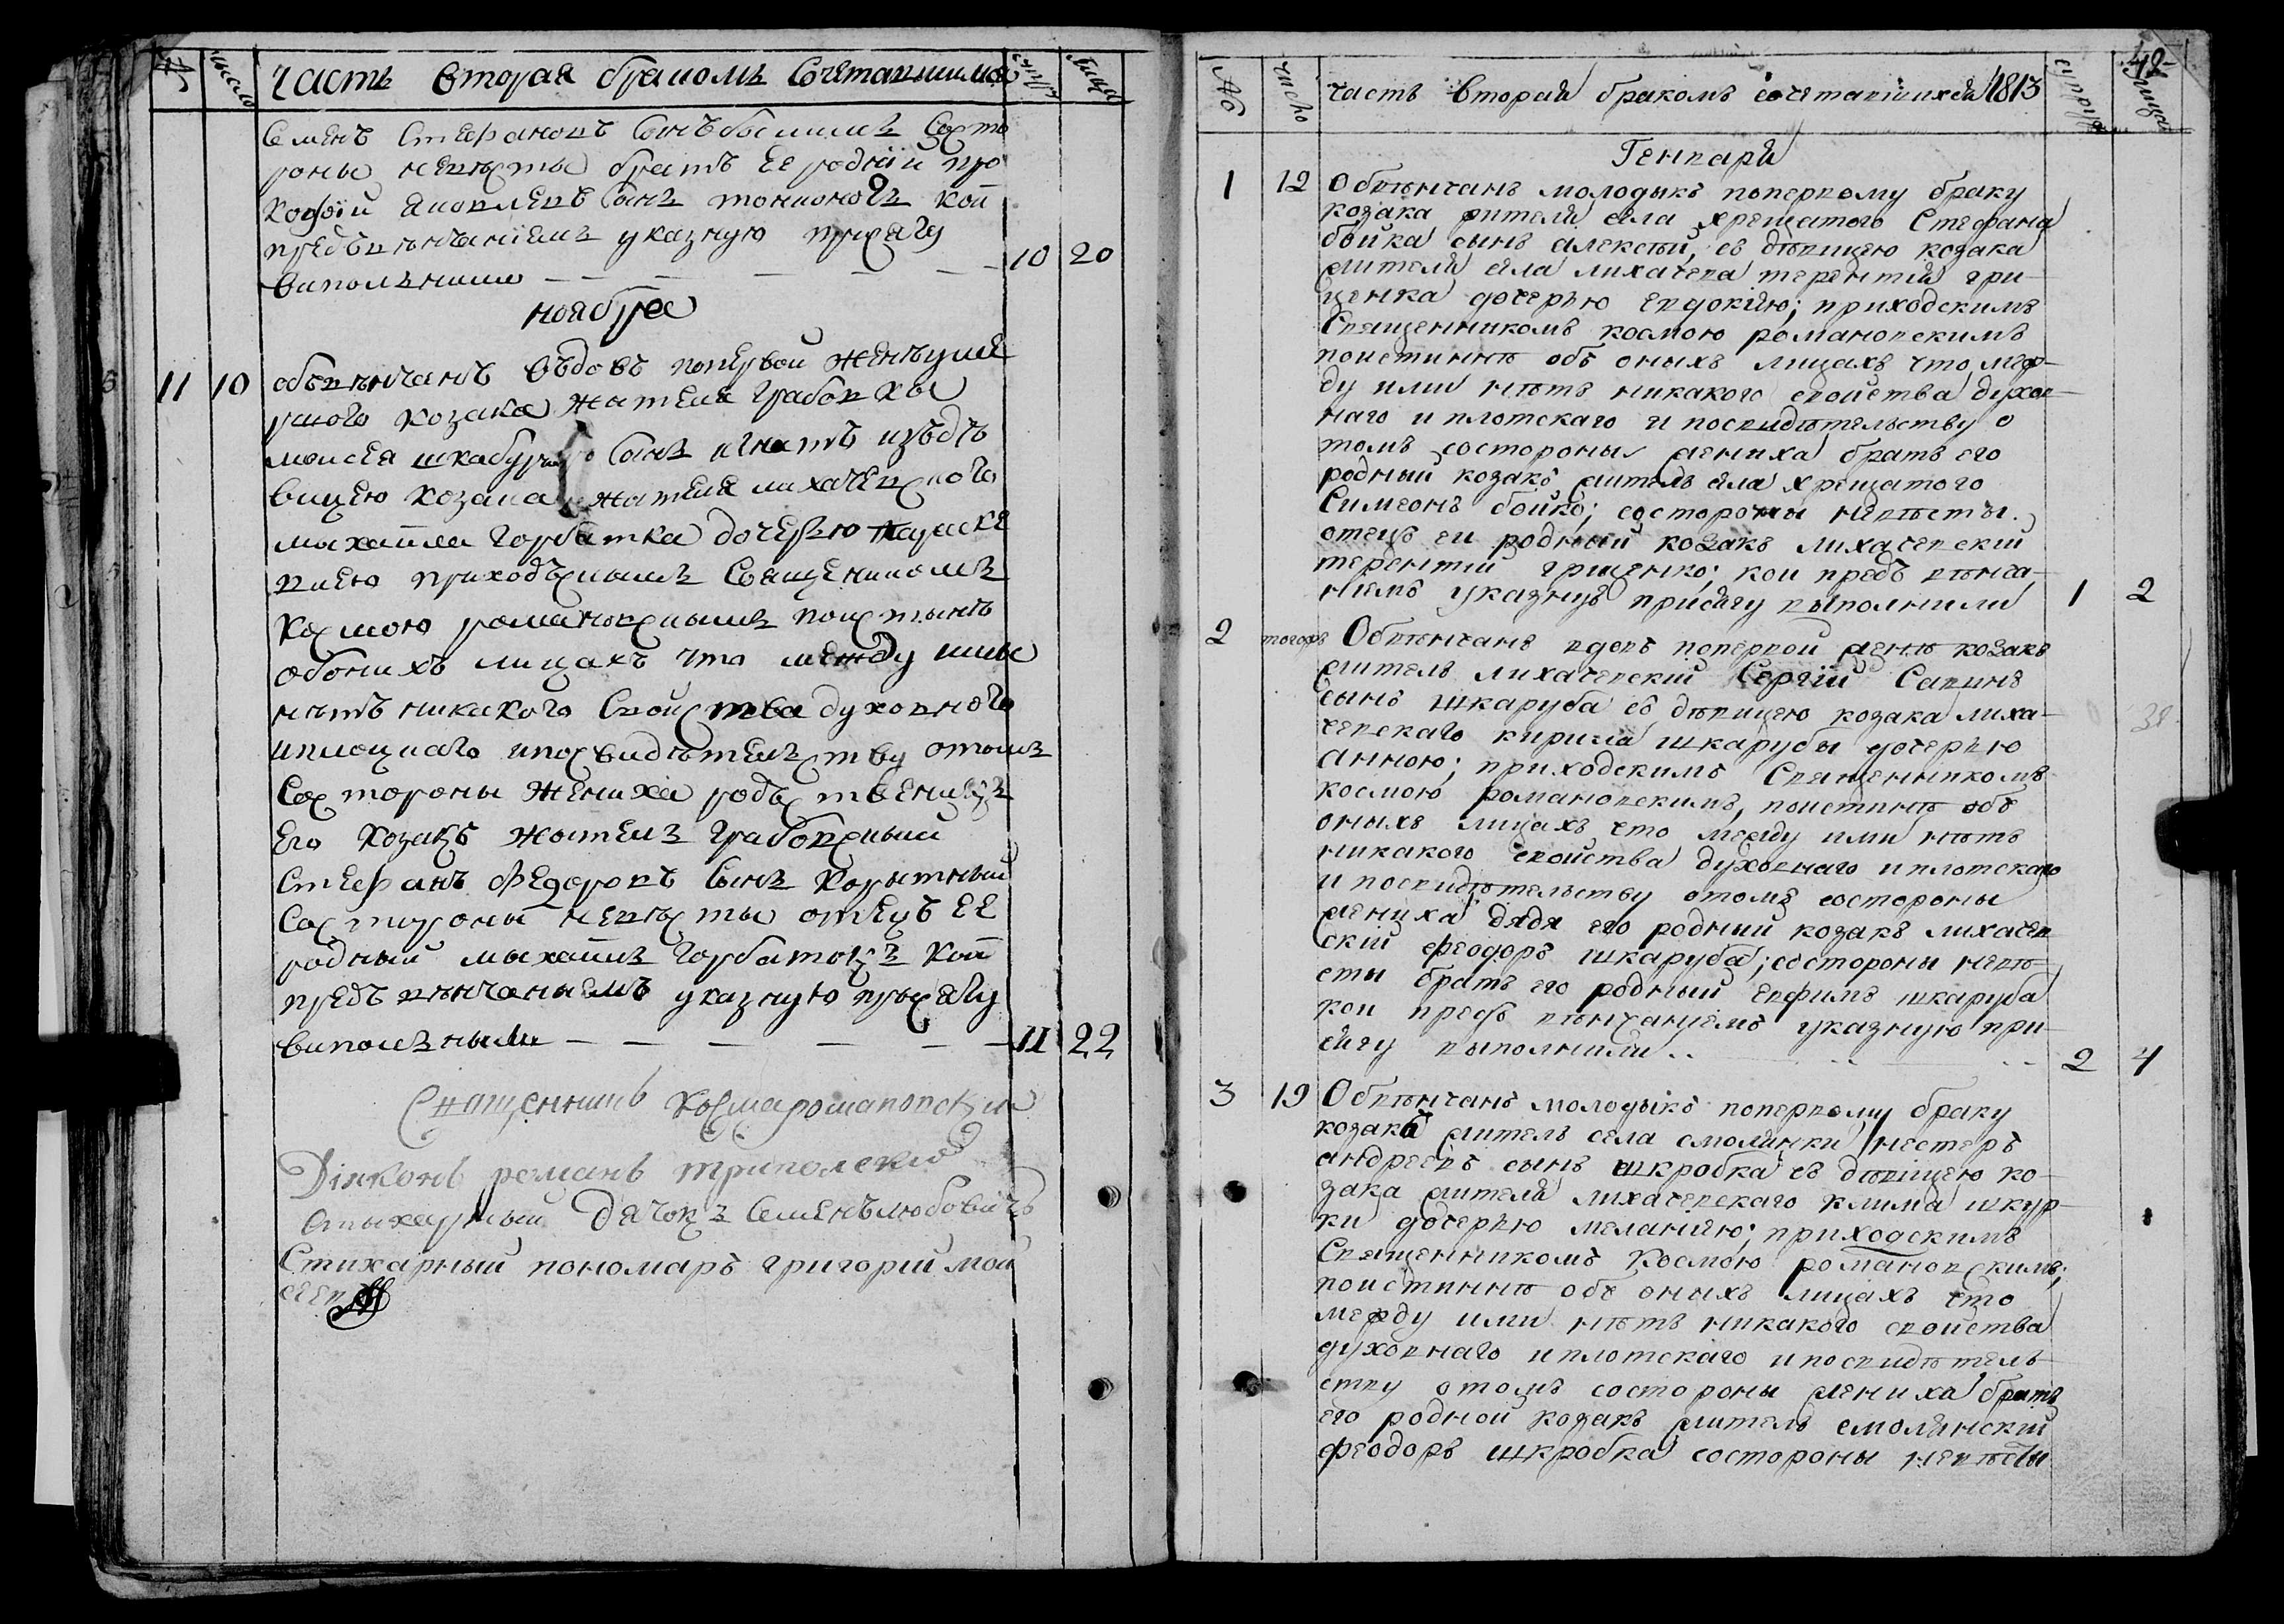 № число часть вторая браком сочетавшимся супру лица
Семенъ Стефановъ Сынъ бымимъ Состо
роны невѣсты братъ Ее родній про
кофій яковлевъ Сынъ тонконогъ кои
предъвѣнчаніемъ указную присягу
виполънили — — — — — — 10 20
ноября
11 10 обвѣнчанъ въдовъ попервой женѣуме
ршого козака жителя грабовкы
моисея шкабур Сынъ игнатъ изъдѣ
вицею козака жителя лихачевского
михайла горбатка дочерью параске
виею приходъскымъ Священикомъ
космою романовскымъ поистынѣ
обонихъ лицахъ что между ими
нѣтъ никакого Свойства духовного
иплоцкаго ипосвидѣтелъству отомъ
Состороны жениха родъственикъ
Его козакъ жителъ грабовскый
Стефанъ Федоровъ Сынъ Корытный
Состороны невѣсты отецъ ЕЕ
родный михайлъ горбатокъ кои
предъвѣнчаныемъ указную прысягу
виполънылы — — — — — — 11 22
Священникъ Космаромановскій
Діяконъ романъ триполскій
Стыхарный Дячокъ Семенълюбовичъ
Стихарный пономаръ григорій мои
сеев
№ число часть вторая бракомъ сочетавшихся 1813 супруж лица 42
Генваря
1 12 Обвѣнчанъ молодыкъ попервому браку
козака жителя села хрещатого Стефана
бойка сынъ алексѣй, съ дѣвицею козака
жителя села лихачева терентія гри-
ценка дочерью евдокіею; приходскимъ
Священникомъ космою романовскимъ
поистиннѣ объ оныхъ лицахъ что меж-
ду ими нѣтъ никакого свойства духов-
наго и плотскаго и посвидѣтельству о
томъ состороны жениха братъ его
родный козакъ житель села хрещатого
Симеонъ бойко; состороны невѣсты.
отецъ еи родный козакъ лихачевскій
терентій гриценко; кои предъ вѣнча-
ніемъ указную присягу выполнили 1 2
2 тогожъ Обвѣнчанъ вдовъ попервой женѣ козакъ
житель лихачевскій Сергій Савинъ
сынъ шкаруба съ дѣвицею козака лиха-
чевскаго кирила шкарубы дочерью 38
анною; приходскимъ Священникомъ
космою романовскимъ, поистиннѣ объ
оныхъ лицахъ что между ими нѣтъ
никакого свойства духовнаго и плотскаго
и посвидѣтельству отомъ состороны
жениха дядя его родный козакъ лихачев
скій феодоръ шкаруба; состороны невѣ-
сты братъ его родный евфимъ шкаруба
кои предъ вѣнчаніемъ указную при-
сягу выполнили .. .. .. 2 4
3 19 Обвѣнчанъ молодыкъ попервому браку
козакъ житель села смолянки нестеръ
андреевъ сынъ шкробка съ дѣвицею ко-
зака жителя лихачевскаго клима шкур-
ки дочерью меланіею; приходскимъ
Священникомъ Космою романовскимъ;
поистиннѣ объ оныхъ лицахъ что
между ими нѣтъ никакого свойства
духовнаго и плотскаго и посвидѣтель-
ству отомъ состороны жениха братъ
его родной козакъ житель смолянскій
феодоръ шкробка состороны невѣсты